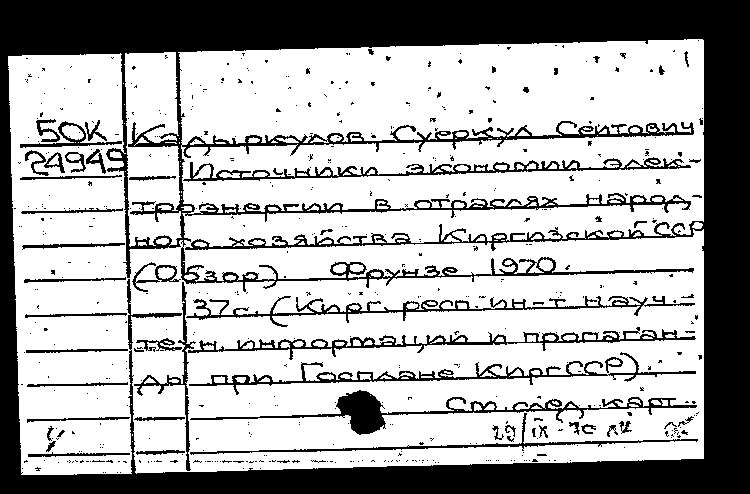 1
50К Кадыркулов, Суеркул Сеитович
24949 Источники экономии элек-
троэнергии в отраслях народ-
ного хозяйства Киргизской ССР
(Обзор). Фрунзе, 1970.
37с. (Кирг. респ. ин-т науч.-
техн. информации и пропаган-
ды при Госплане Кирг ССР).
См. след. карт.
У 29/IX-70 лк